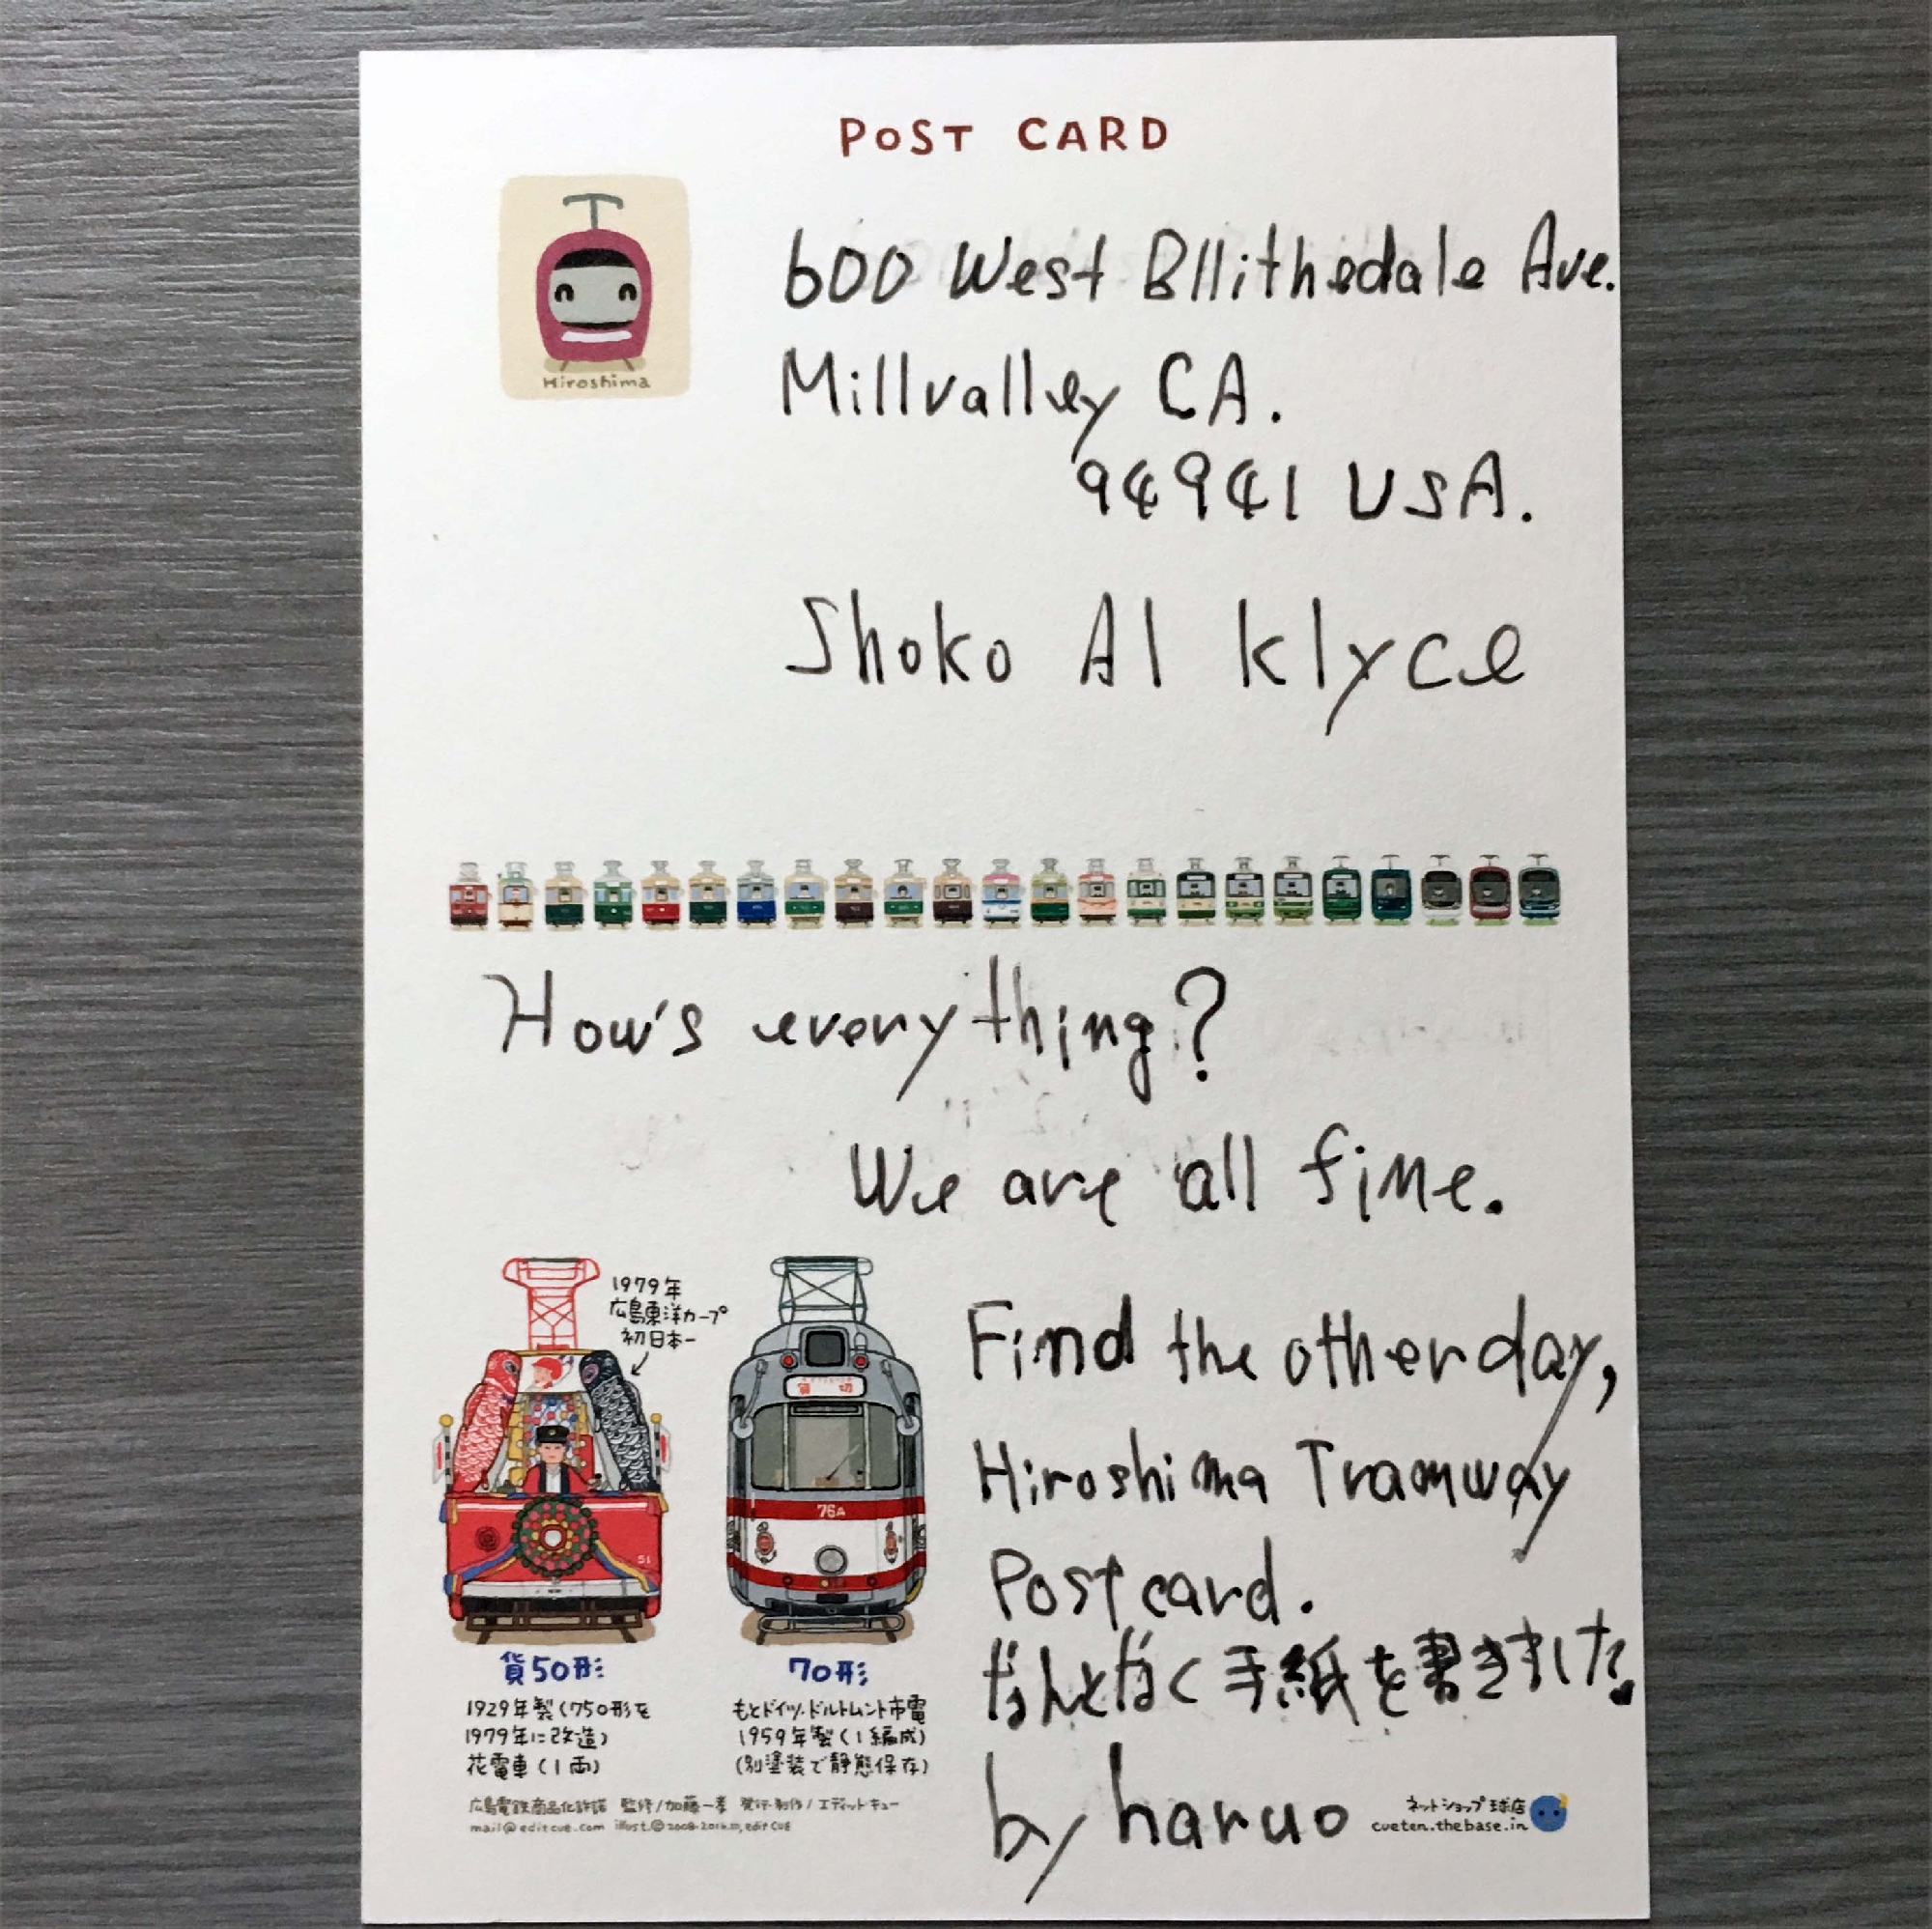 POST CARD
Hiroshima
600 West Bllithedale Ave.
Millvalley CA.
94941 USA.
Shoko Al klyce
How's everything?
We are all fine.
Find the other day,
Hiroshima Tramway
Postcard.
なんとなく手紙を書きました。
by haruo
1979年
広島東洋カープ
初日本一
貸切
76A
51
貨50形
1929年製(750形を
1979年に改造)
花電車(1両)
70形
もとドイツ・ドルトムント市電
1959年製(1編成)
(別塗装で静態保存)
広島電鉄商品化許諾 監修/加藤一孝 発行・制作/エディットキュー
mail@editcue.com illust.©2008-2016.10, edit CUE
ネットショップ球店
cueten.thebase.in